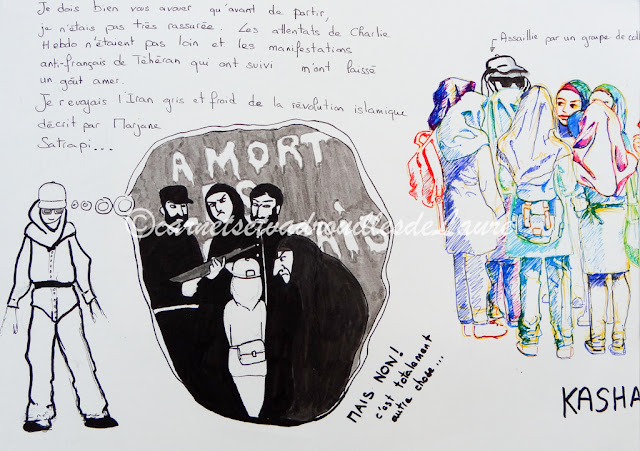 Je dois bien vous avouer qu'avant de partir,
je n'étais pas très rassurée. Les attentats de Charlie
Hebdo n'étaient pas loin et les manifestations
anti-français de Téhéran qui ont suivi m'ont laissé
un goût amer.
Je revoyais l'Iran gris et froid de la révolution islamique
décrit par Marjane
Satrapi...
Assaillie par un groupe de coll
A MORT
AIS
©carnetsetvadrouillesdeLaure
MAIS NON!
c'est totalement
autre chose...
KASHA